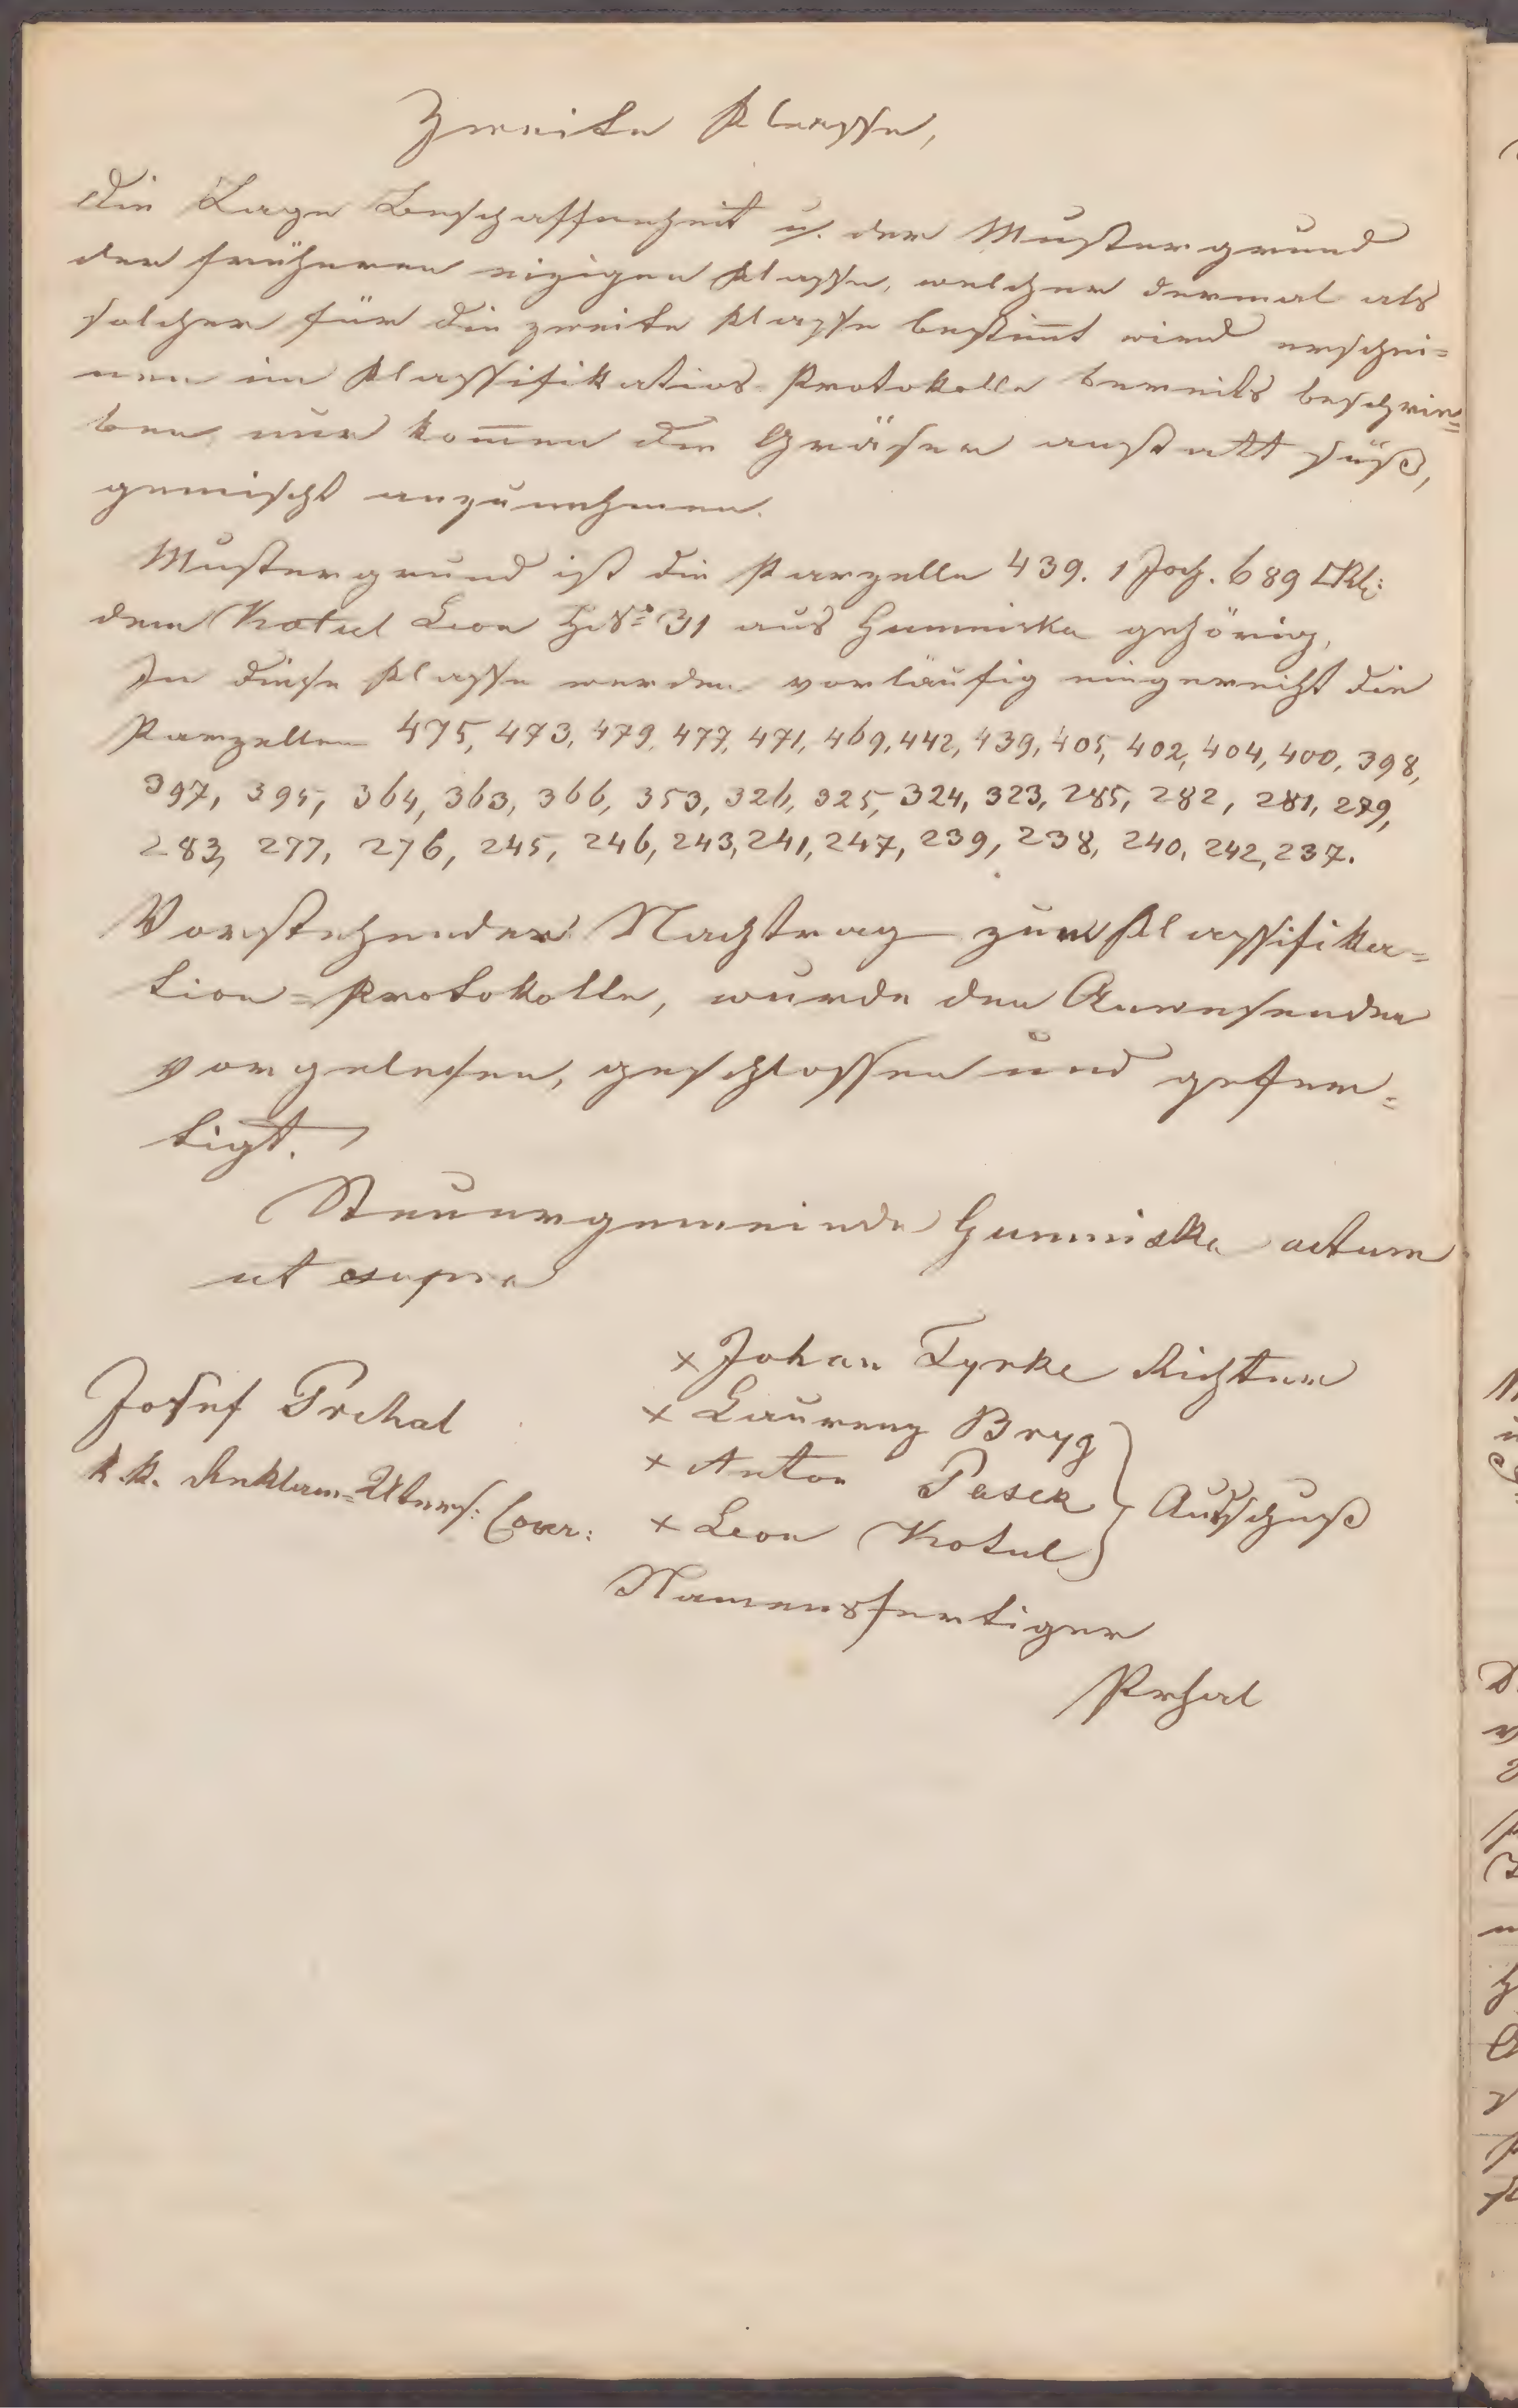 Zweite Klasse,
Die Lage Beschaffenheit u. der Mustergrund
der früheren einzigen Klasse, welcher dermal als
solcher für die zweite Klasse bestim̅t wird erschei=
nen im Klassifikations Protokolle bereits beschrie=
ben, nur kom̅en die Gräser anstatt süß,
gemischt anzunehmen.
Mustergrund ist die Parzelle 439. 1 Joch. 689 □Kl:
dem Kotul Leon H. No: 31 aus Humniska gehörig,
In diese Klasse werden vorläufig eingereiht die
Parzellen 475, 473, 479, 477, 471, 469, 442, 439, 405, 402, 404, 400, 398,
397, 395, 364, 363, 366, 353, 326, 325, 324, 323, 285, 282, 281, 279,
283, 277, 276, 245, 246, 243, 241, 247, 239, 238, 240, 242, 237.
Vorstehender Nachtrag zum Klassifika=
tion=Protokolle, wurde den Anwesenden
vorgelesen, geschlossen und gefer=
tigt.
Steuergemeinde Humniska actum
ut supra
Josef Prchal
k.k. Reklam=Unters: Com:
× Johan Tyrke Richter
× Laurenz Bryg
× Anton Pasek
× Leon Kotul
Ausschuß
Namensfertiger
Prhal